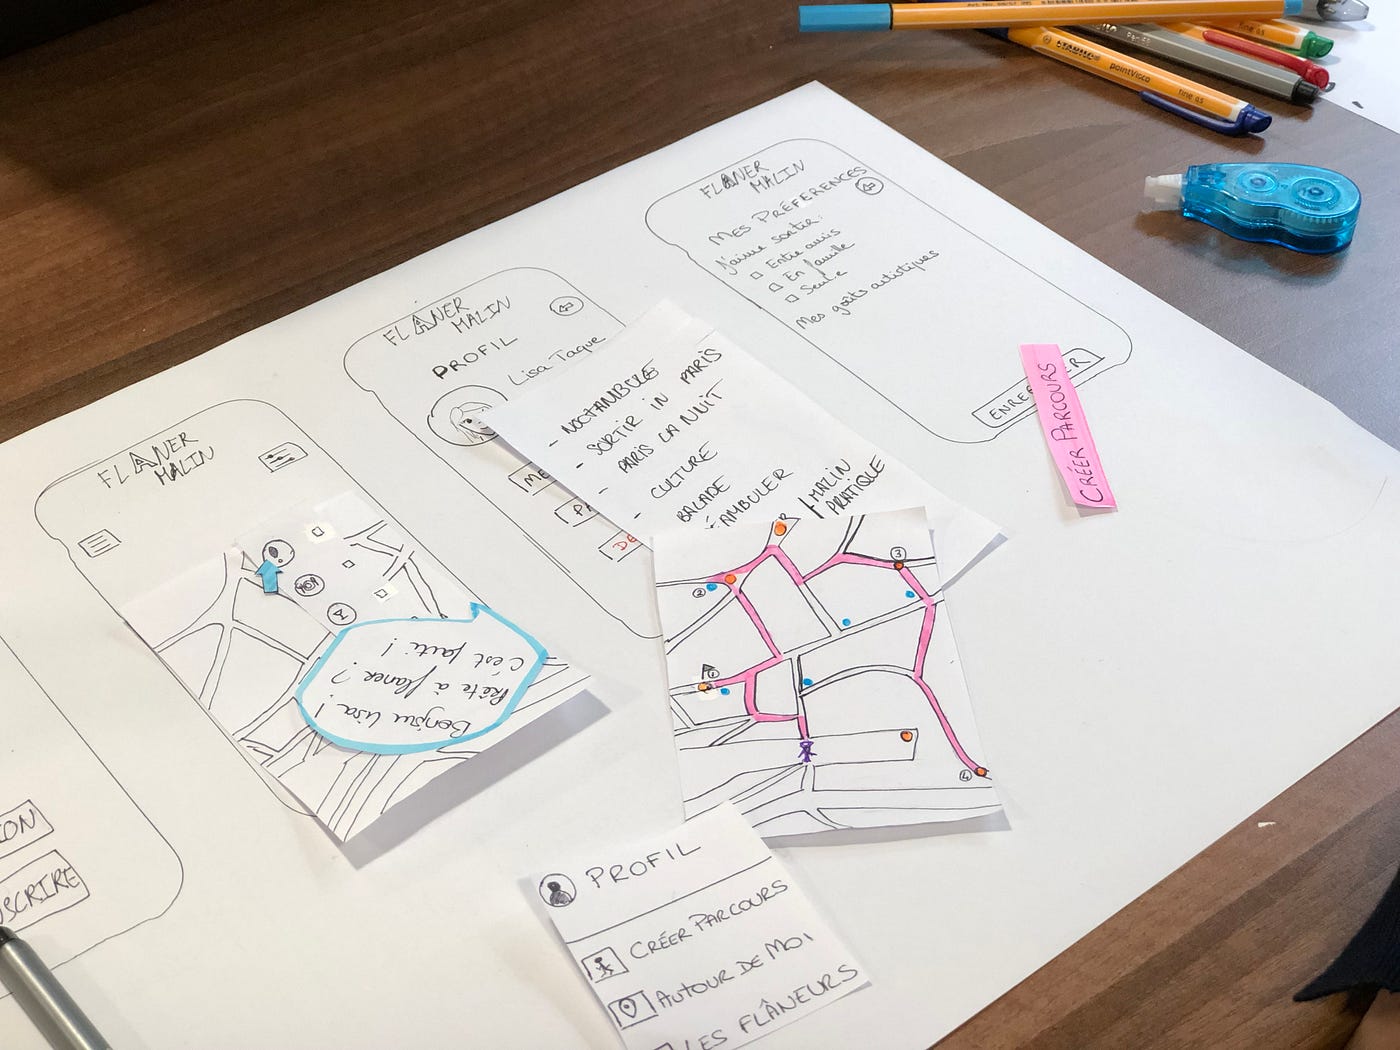 FLÂNER
MALIN
MES PRÉFÉRENCES
J'aime sortir :
Entre amis
En famille
Seul·e
Mes goûts artistiques
ENRE
CRÉER PARCOURS
FLÂNER
MALIN
PROFIL
Lisa Taque
ME
PA
DE
- NOCTAMBULE
- SORTIR IN PARIS
- PARIS LA NUIT
- CULTURE
BALADE
AMBULER
MALIN
PRATIQUE
FLÂNER
MALIN
Bonjour Lisa !
Prête à flâner ?
C'est parti !
2
3
1
4
PROFIL
CRÉER PARCOURS
AUTOUR DE MOI
LES FLÂNEURS
ION
SCRIRE
STABILO
pointVisco
fine 0.5